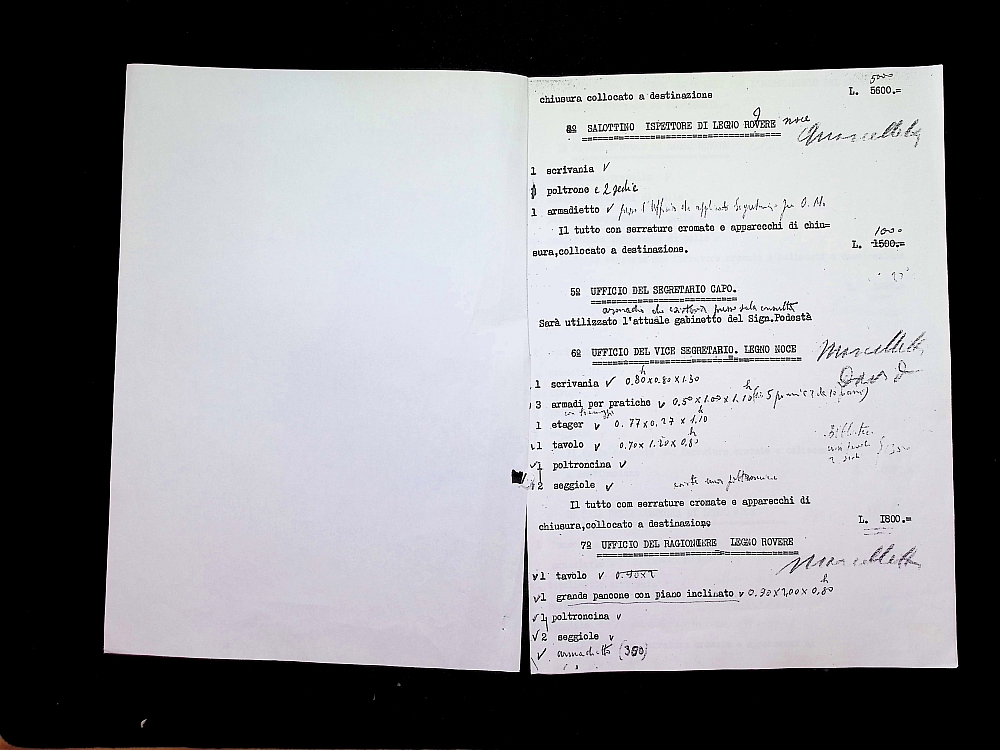 5000
chiusura collocato a destinazione L. 5600.=
8º SALOTTINO ISPETTORE DI LEGNO ROVERE noce
1 scrivania √
1 poltrone e 2 sedie
1 armadietto √
Il tutto con serrature cromate e apparecchi di chiu=
1000
sura,collocato a destinazione. L. 1500.=
5º UFFICIO DEL SEGRETARIO CAPO.
Sarà utilizzato l'attuale gabinetto del Sign.Podestà
6º UFFICIO DEL VICE SEGRETARIO. LEGNO NOCE
1 scrivania √ 0.80x0.80x1.30
h
3 armadi per pratiche √ 0.50x1.00x1.10
h
1 etager √ 0.77x0.27x1.10
h
1 tavolo √ 0.70x1.20x0.80
h
√1 poltroncina √
2 seggiole √
Il tutto com serrature cromate e apparecchi di
chiusura,collocato a destinazione L. 1800.=
7º UFFICIO DEL RAGIONIERE LEGNO ROVERE
√1 tavolo √
√1 grande pancone con piano inclinato √ 0.90x2,00x0,80
h
√1 poltroncina √
√2 seggiole √
√ armadietto (350)